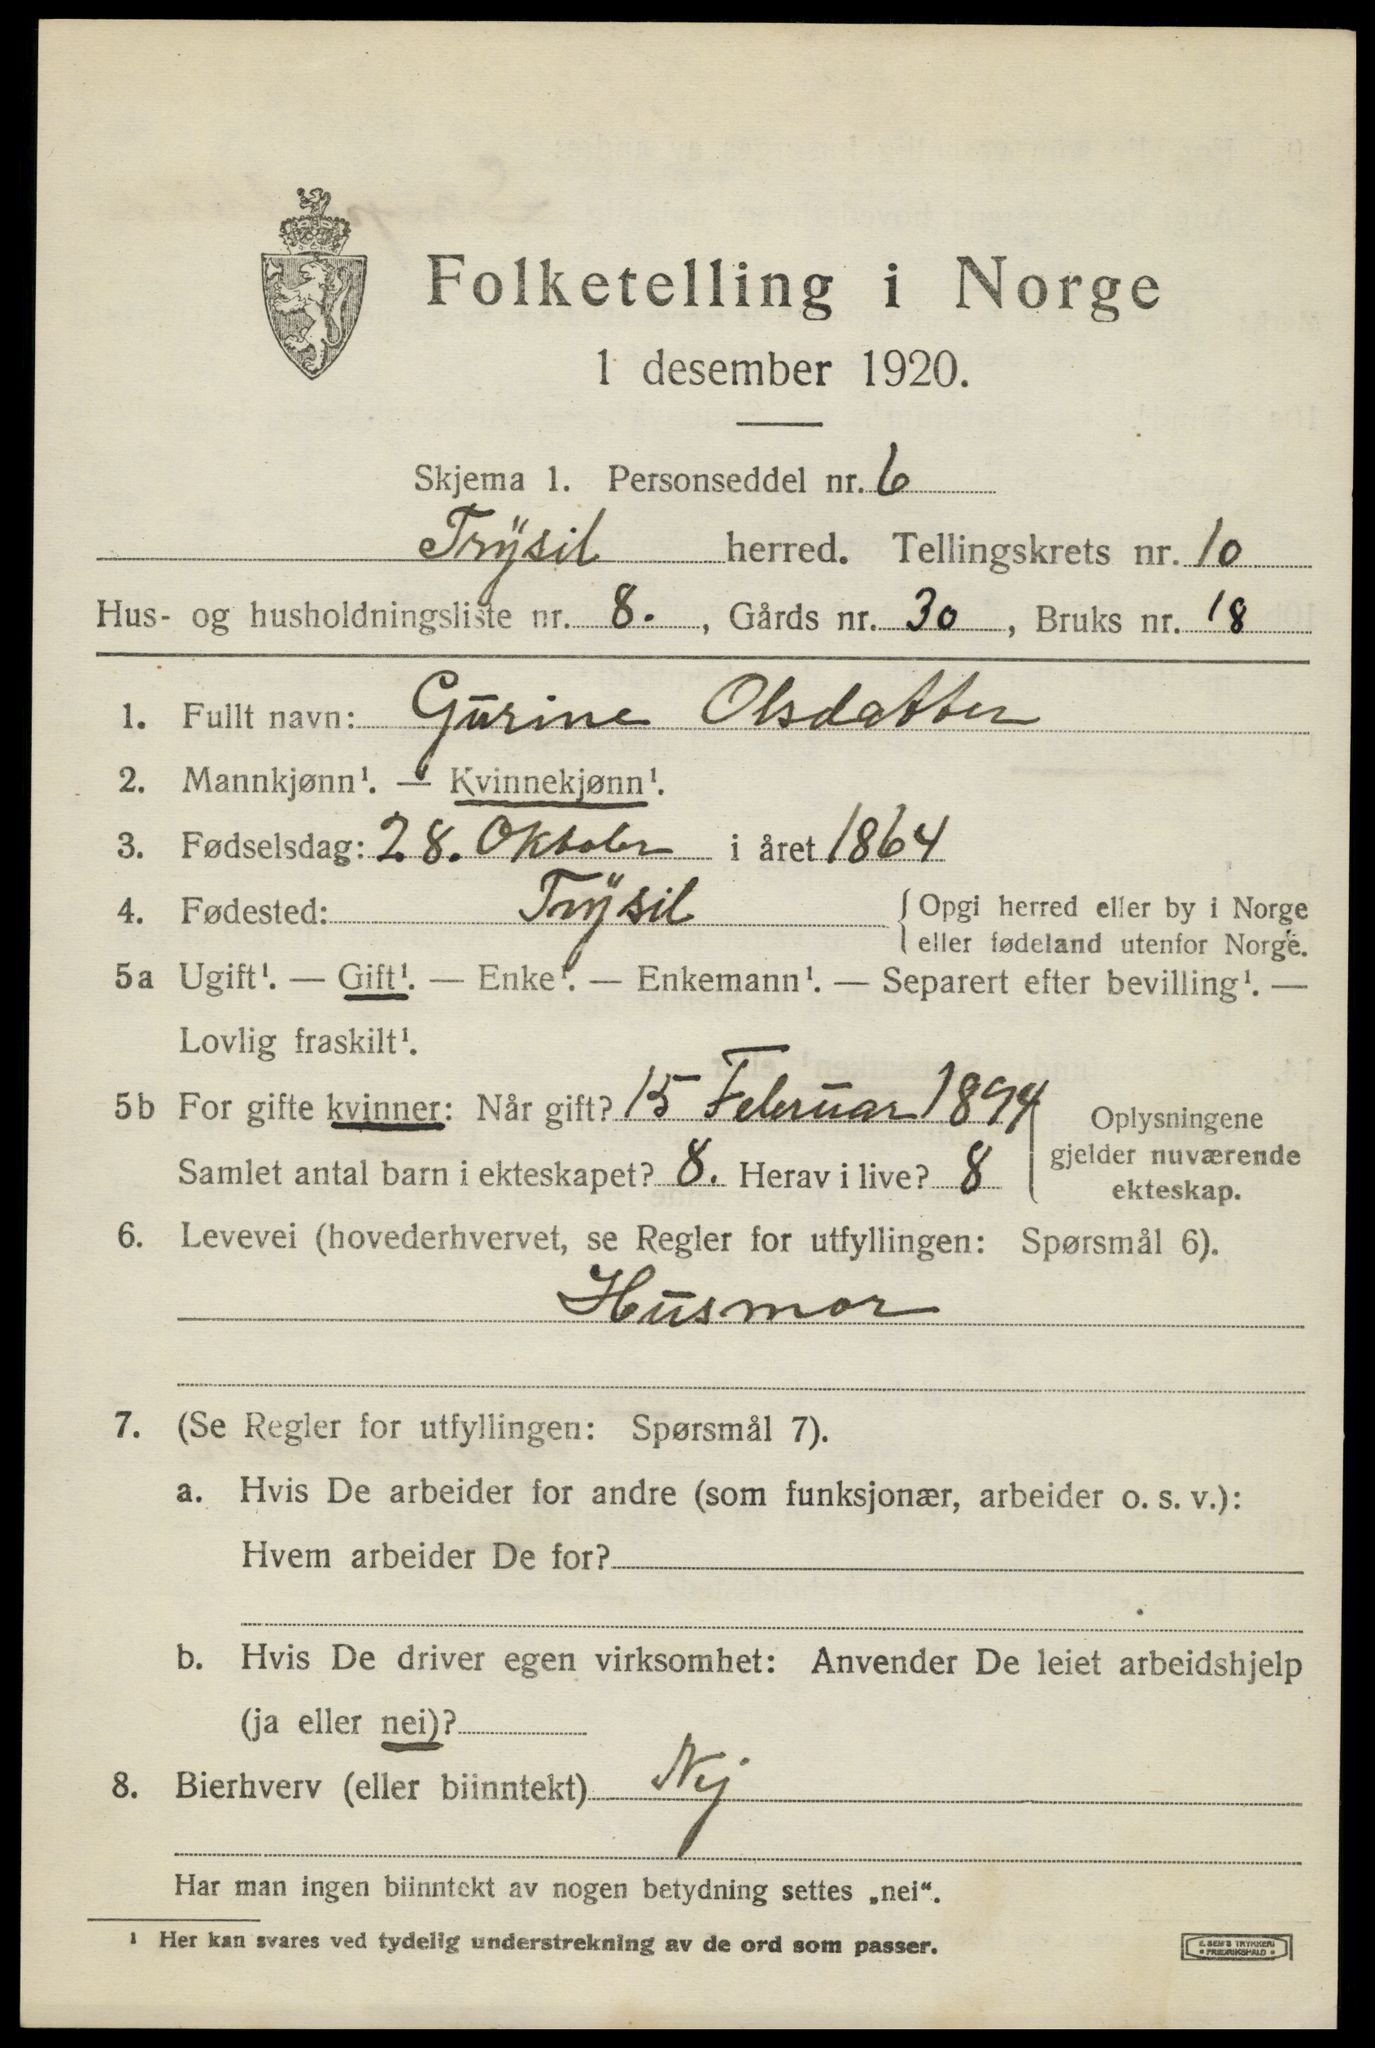 Folketelling i Norge
1 desember 1920.
Skjema 1. Personseddel nr. 6
Trÿsil herred. Tellingskrets nr. 10
Hus- og husholdningsliste nr. 8. , Gårds nr. 30 , Bruks nr. 18
1. Fullt navn: Gurine Olsdatter
2. Mannkjønn¹. — Kvinnekjønn¹.
3. Fødselsdag: 28. Oktober i året 1864
4. Fødested: Trÿsil { Opgi herred eller by i Norge
eller fødeland utenfor Norge.
5a Ugift¹. — Gift¹. — Enke¹. — Enkemann¹. — Separert efter bevilling¹. —
Lovlig fraskilt¹.
5b For gifte kvinner: Når gift? 15 Februar 1894
Samlet antal barn i ekteskapet? 8. Herav i live? 8
Oplysningene
gjelder nuværende
ekteskap.
6. Levevei (hovederhvervet, se Regler for utfyllingen: Spørsmål 6).
Husmor
7. (Se Regler for utfyllingen: Spørsmål 7).
a. Hvis De arbeider for andre (som funksjonær, arbeider o. s. v.):
Hvem arbeider De for?
b. Hvis De driver egen virksomhet: Anvender De leiet arbeidshjelp
(ja eller nei)?
8. Bierhverv (eller biinntekt) Nej
Har man ingen biinntekt av nogen betydning settes „nei“.
¹ Her kan svares ved tydelig understrekning av de ord som passer.
E. SEM'S TRYKKERI
FREDRIKSHALD